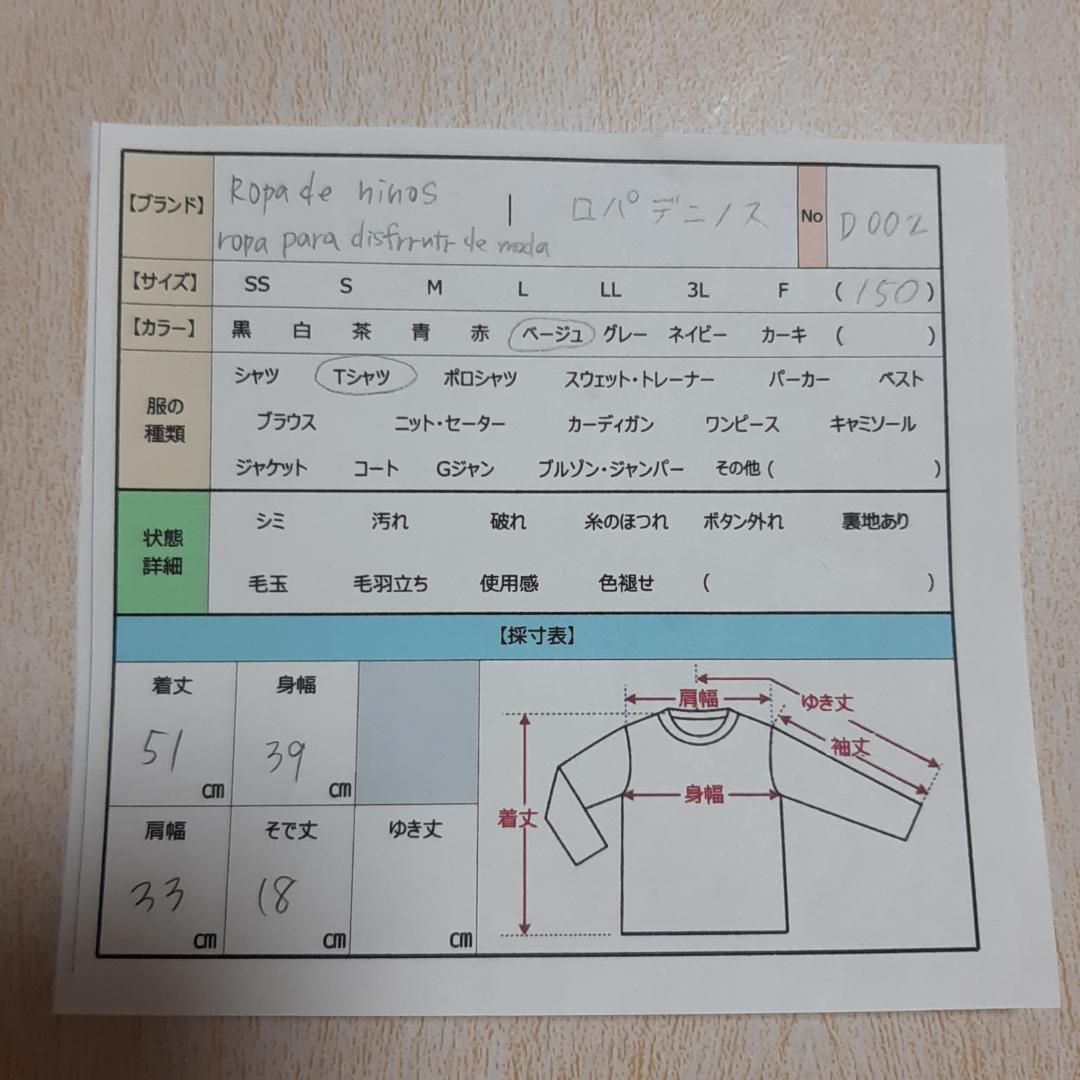 【ブランド】 Ropa de ninos | ロパデニノス No D002
ropa para disfrrutr de moda
【サイズ】 SS S M L LL 3L F (150)
【カラー】 黒 白 茶 青 赤 ベージュ グレー ネイビー カーキ ( )
服の種類 シャツ Tシャツ ポロシャツ スウェット・トレーナー パーカー ベスト
ブラウス ニット・セーター カーディガン ワンピース キャミソール
ジャケット コート Gジャン ブルゾン・ジャンパー その他 ( )
状態詳細 シミ 汚れ 破れ 糸のほつれ ボタン外れ 裏地あり
毛玉 毛羽立ち 使用感 色褪せ ( )
【採寸表】
着丈 身幅
51 cm 39 cm
肩幅 そで丈 ゆき丈
33 cm 18 cm cm
肩幅 ゆき丈
袖丈
身幅
着丈